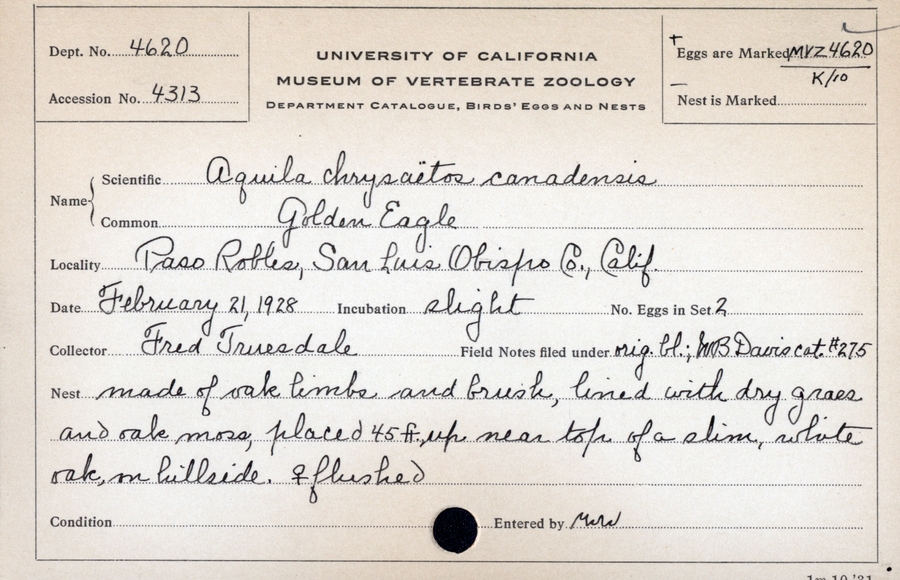 Dept. No. 4620
Accession No. 4313
UNIVERSITY OF CALIFORNIA
MUSEUM OF VERTEBRATE ZOOLOGY
DEPARTMENT CATALOGUE, BIRDS' EGGS AND NESTS
+
Eggs are Marked MVZ 4620
K/10
—
Nest is Marked
Name { Scientific Aquila chrysaëtos canadensis
Common Golden Eagle
Locality Paso Robles, San Luis Obispo Co., Calif.
Date February 21, 1928 Incubation slight No. Eggs in Set 2
Collector Fred Truesdale Field Notes filed under orig. bl.; WB Davis cat. #275
Nest made of oak limbs and brush, lined with dry grass
and oak moss, placed 45 ft. up near top of a slim, white
oak, on hillside. ♀ flushed
Condition Entered by
1m 10 '31